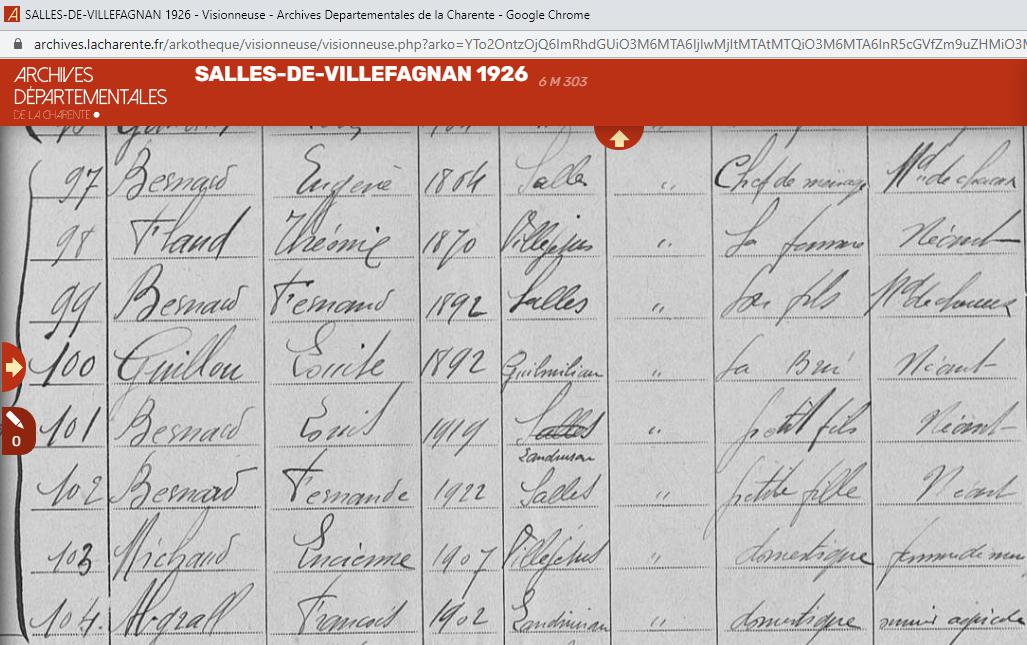 SALLES-DE-VILLEFAGNAN 1926 - Visionneuse - Archives Departementales de la Charente - Google Chrome
archives.lacharente.fr/arkotheque/visionneuse/visionneuse.php?arko=
ARCHIVES
DÉPARTEMENTALES
DE LA CHARENTE
SALLES-DE-VILLEFAGNAN 1926 6 M 303
97 Bernard Eugène 1864 Salles " Chef de ménage Md de chevaux
98 Flaud Théonie 1870 Villejésus " Sa femme Néant
99 Bernard Fernand 1892 Salles " Son fils Md de chevaux
100 Guillou Louise 1892 " Sa Bru Néant
101 Bernard Louis 1919 Salles " petit fils Néant
Landivisiau
102 Bernard Fernande 1922 Salles " petite fille Néant
103 Michaud Lucienne 1907 Villejésus " domestique
104. François 1902 Landivisiau " domestique
0